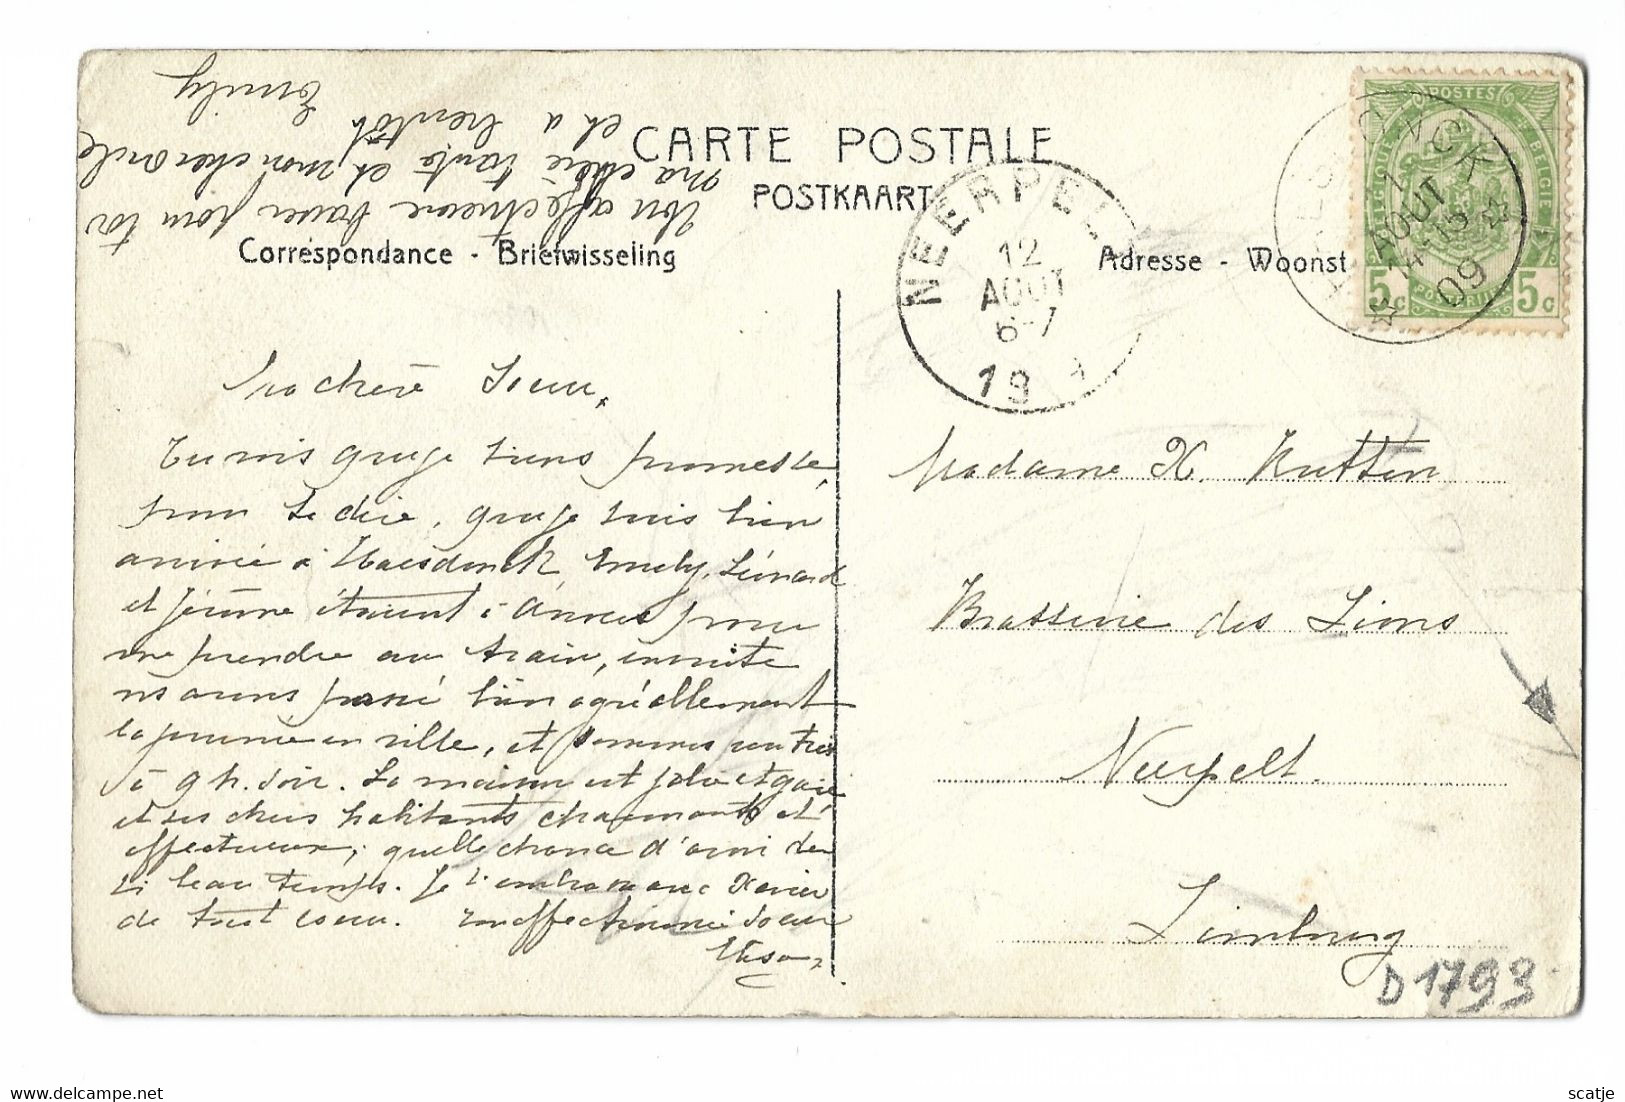 CARTE POSTALE
POSTKAART
Correspondance - Briefwisseling
Adresse - Woonst
POSTES
BELGIQUE
BELGIË
5c
5c
POSTERIJEN
AOUT
14-15
09
NEERPEL
12
AOUT
6-7
19
Un affectueux baiser pour toi
ma chère tante et mon cher oncle
et à bientôt
Emily
Ma chère Soeur,
Tu vois que je tiens promesse,
pour te dire, que je suis bien
arrivée à Haesdonck, Emely, Léonard
et Jeanne étaient à Anvers pour
me prendre au train, ensuite
ns avons passé bien agréablement
la journée en ville, et sommes rentrés
à 9 h. soir. La maison est jolie et gaie
et ses chers habitants charmants et
affectueux, quelle chance d'avoir
si beau temps. Je t'embrasse avec Xavier
de tout coeur. Ton affectionnée soeur
Elisa,
Madame X. Rutten
Brasserie des Lions
Neerpelt.
Limburg
D1793
www.delcampe.net
scatje